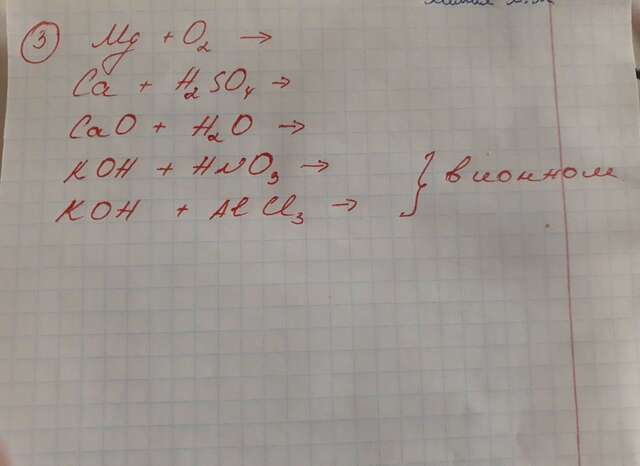 ③ Mg + O₂ →
Ca + H₂SO₄ →
CaO + H₂O →
KOH + HNO₃ →
KOH + AlCl₃ →
} в ионном